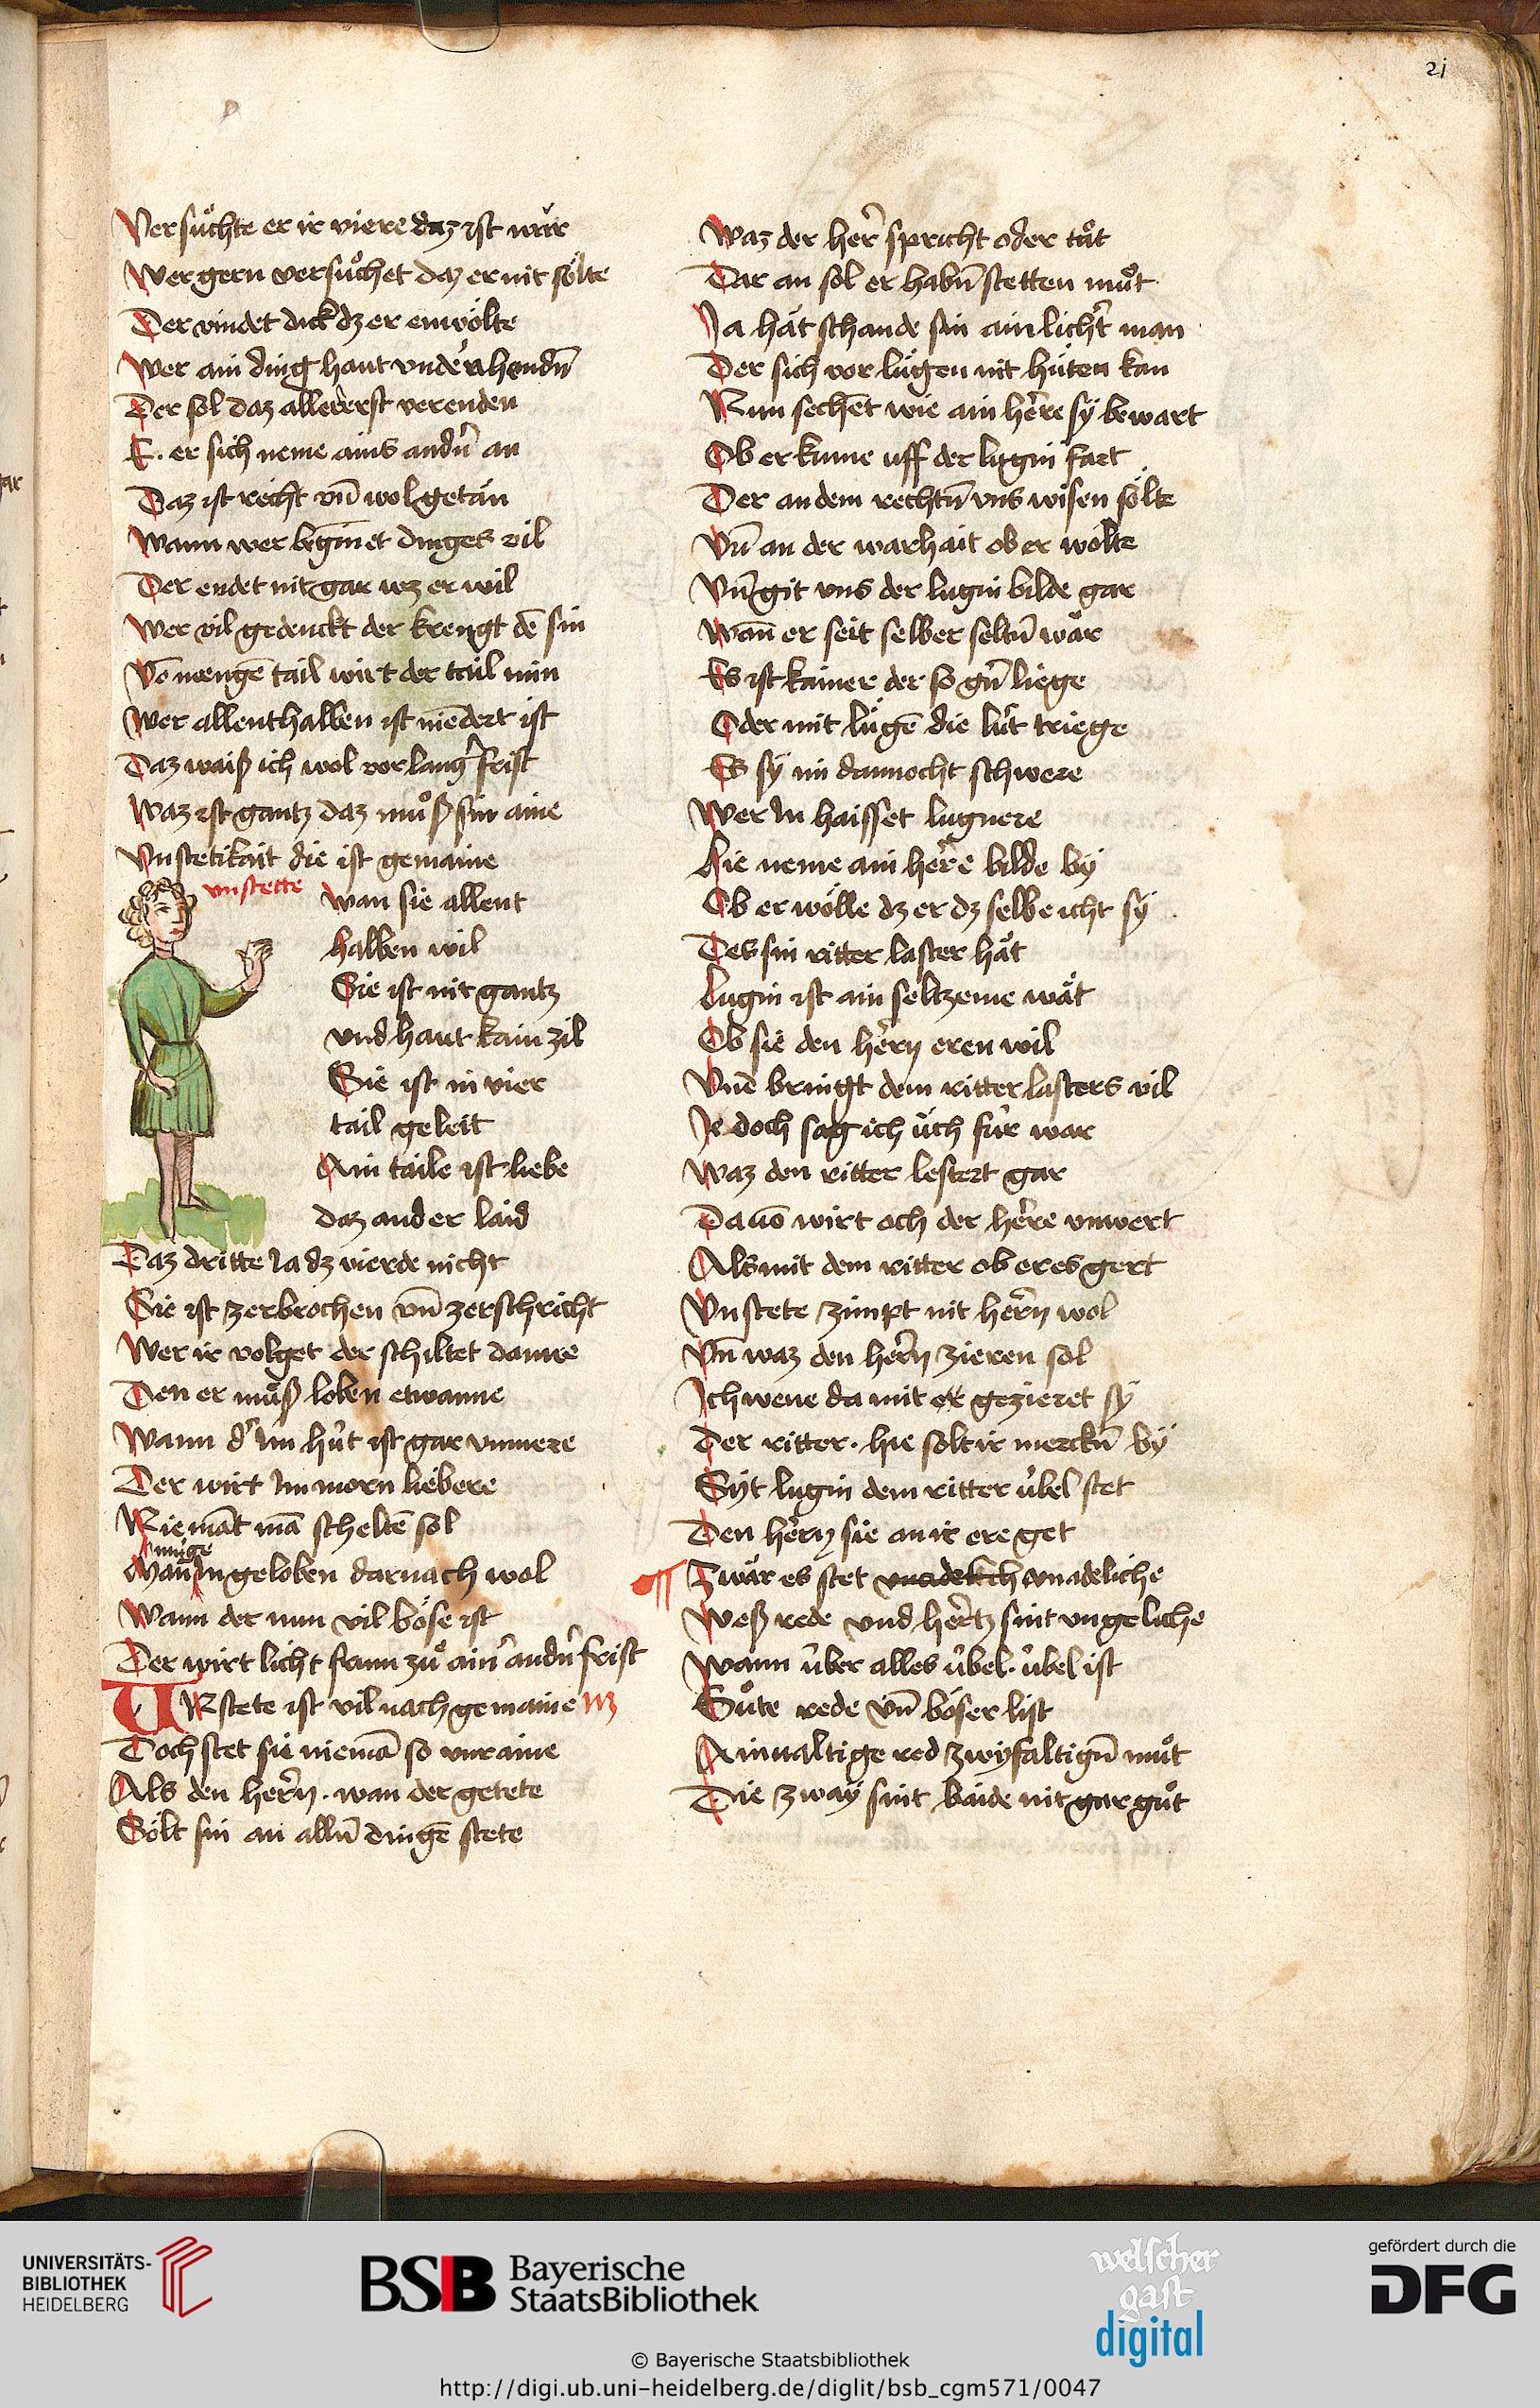 21
Versuͦchte er ir viere daz ist war
Wer gern versuͦchet daz er nit soͤlte
Der vindet dick dz er enwoͤlte
Wer ain ding haut vnder hendn̄
Der sol daz allererst verenden
E. er sich neme ains andn̄ an
Daz ist recht vn̄ wol getän
Wann wer begīnet dinges vil
Der endet nit gar wz er wil
Wer vil gedenckt der krengt dē sin
Vō mengē tail wirt der tail min
Wer allenthalben ist niēdert ist
Daz waiß ich wol vor langer frist
Waz ist gantz daz muͦß sin aine
Vnstetikait die ist gemaine
vnstette
wan sie allent
halben wil
Sie ist nit gantz
vnd haut kain zil
Sie ist in vier
tail geleit
Ain taile ist liebe
daz ander laid
Daz dritte Ja dz vierde nicht
Sie ist zerbrochen vn̄ zerschricht
Wer ir volget der schiltet danne
Den er muͦß loben etwanne
Wann der Im huͤt ist gar vnmere
Der wirt Im morn liebere
Niemāt mā scheltē sol
muge
Man In geloben darnach wol
Wann der nun vil boͤse ist
Der wirt licht fram zuͦ ainer andn̄ frist
VNstete ist vil nach gemaine
Doch stet sie niemā so vnraine
Als den hern. wan der getete
Soͤlt sin an alln̄ dingē stete
Waz der her spricht oder tuͦt
Dar an sol er habn̄ stetten muͦt
Ja hät schande sin ain lichter man
Der sich vor luͤgen nit huͤten kan
Nun sechēt wie ain here sÿ bewart
Ob er kume uff der lugin fart
Der an dem rechtn̄ vns wisen soͤlte
Vn̄ an der warhait ob er woͤlte
Vn̄ git vns der lugin bilde gar
Wan̄ er seit selber seltn̄ wär
Es ist kainer der so gern liege
Oder mit luͤgē die luͤt triege
Es sÿ im dannocht schwere
Wer In haisset lugnere
Hie neme ain here bilde bÿ
Ob er woͤlle dz er dz selbe icht sÿ
Des sin ritter laster hät
Lugin ist ain seltzeme wät
Ob sie den hern eren wil
Vnd bringt dem ritter lasters vil
Je doch sag ich uͤch fuͤr war
Waz den ritter lestert gar
Dauō wirt och der here vnwert
Als mit dem ritter ob er es gert
Vnstete zimpt nit hern wol
Vn̄ waz den hern zieren sol
Ich wene da mit er gezieret sÿ
Der ritter. hie solt ir merckn̄ bÿ
Sÿt lugin dem ritter uͤbel stet
Den hern sie an ir ere get
Zwär es stet vnadelich vnadeliche
Weß rede vnd hertz sint vngeliche
Wann uͤber alles uͤbel. uͤbel ist
Guͦte rede vn̄ boͤser list
Ainualtige red zwyfaltign̄ muͦt
Die zwaÿ sint baide nit gar guͦt
UNIVERSITÄTS-
BIBLIOTHEK
HEIDELBERG
BSB Bayerische
StaatsBibliothek
welscher
gast
digital
gefördert durch die
DFG
© Bayerische Staatsbibliothek
http://digi.ub.uni-heidelberg.de/diglit/bsb_cgm571/0047